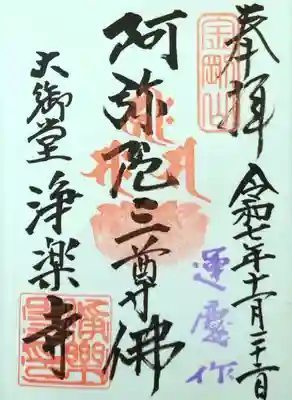 奉拝
金剛山
令和七年十一月
運慶作
阿弥陀三尊佛
大御堂
浄楽寺